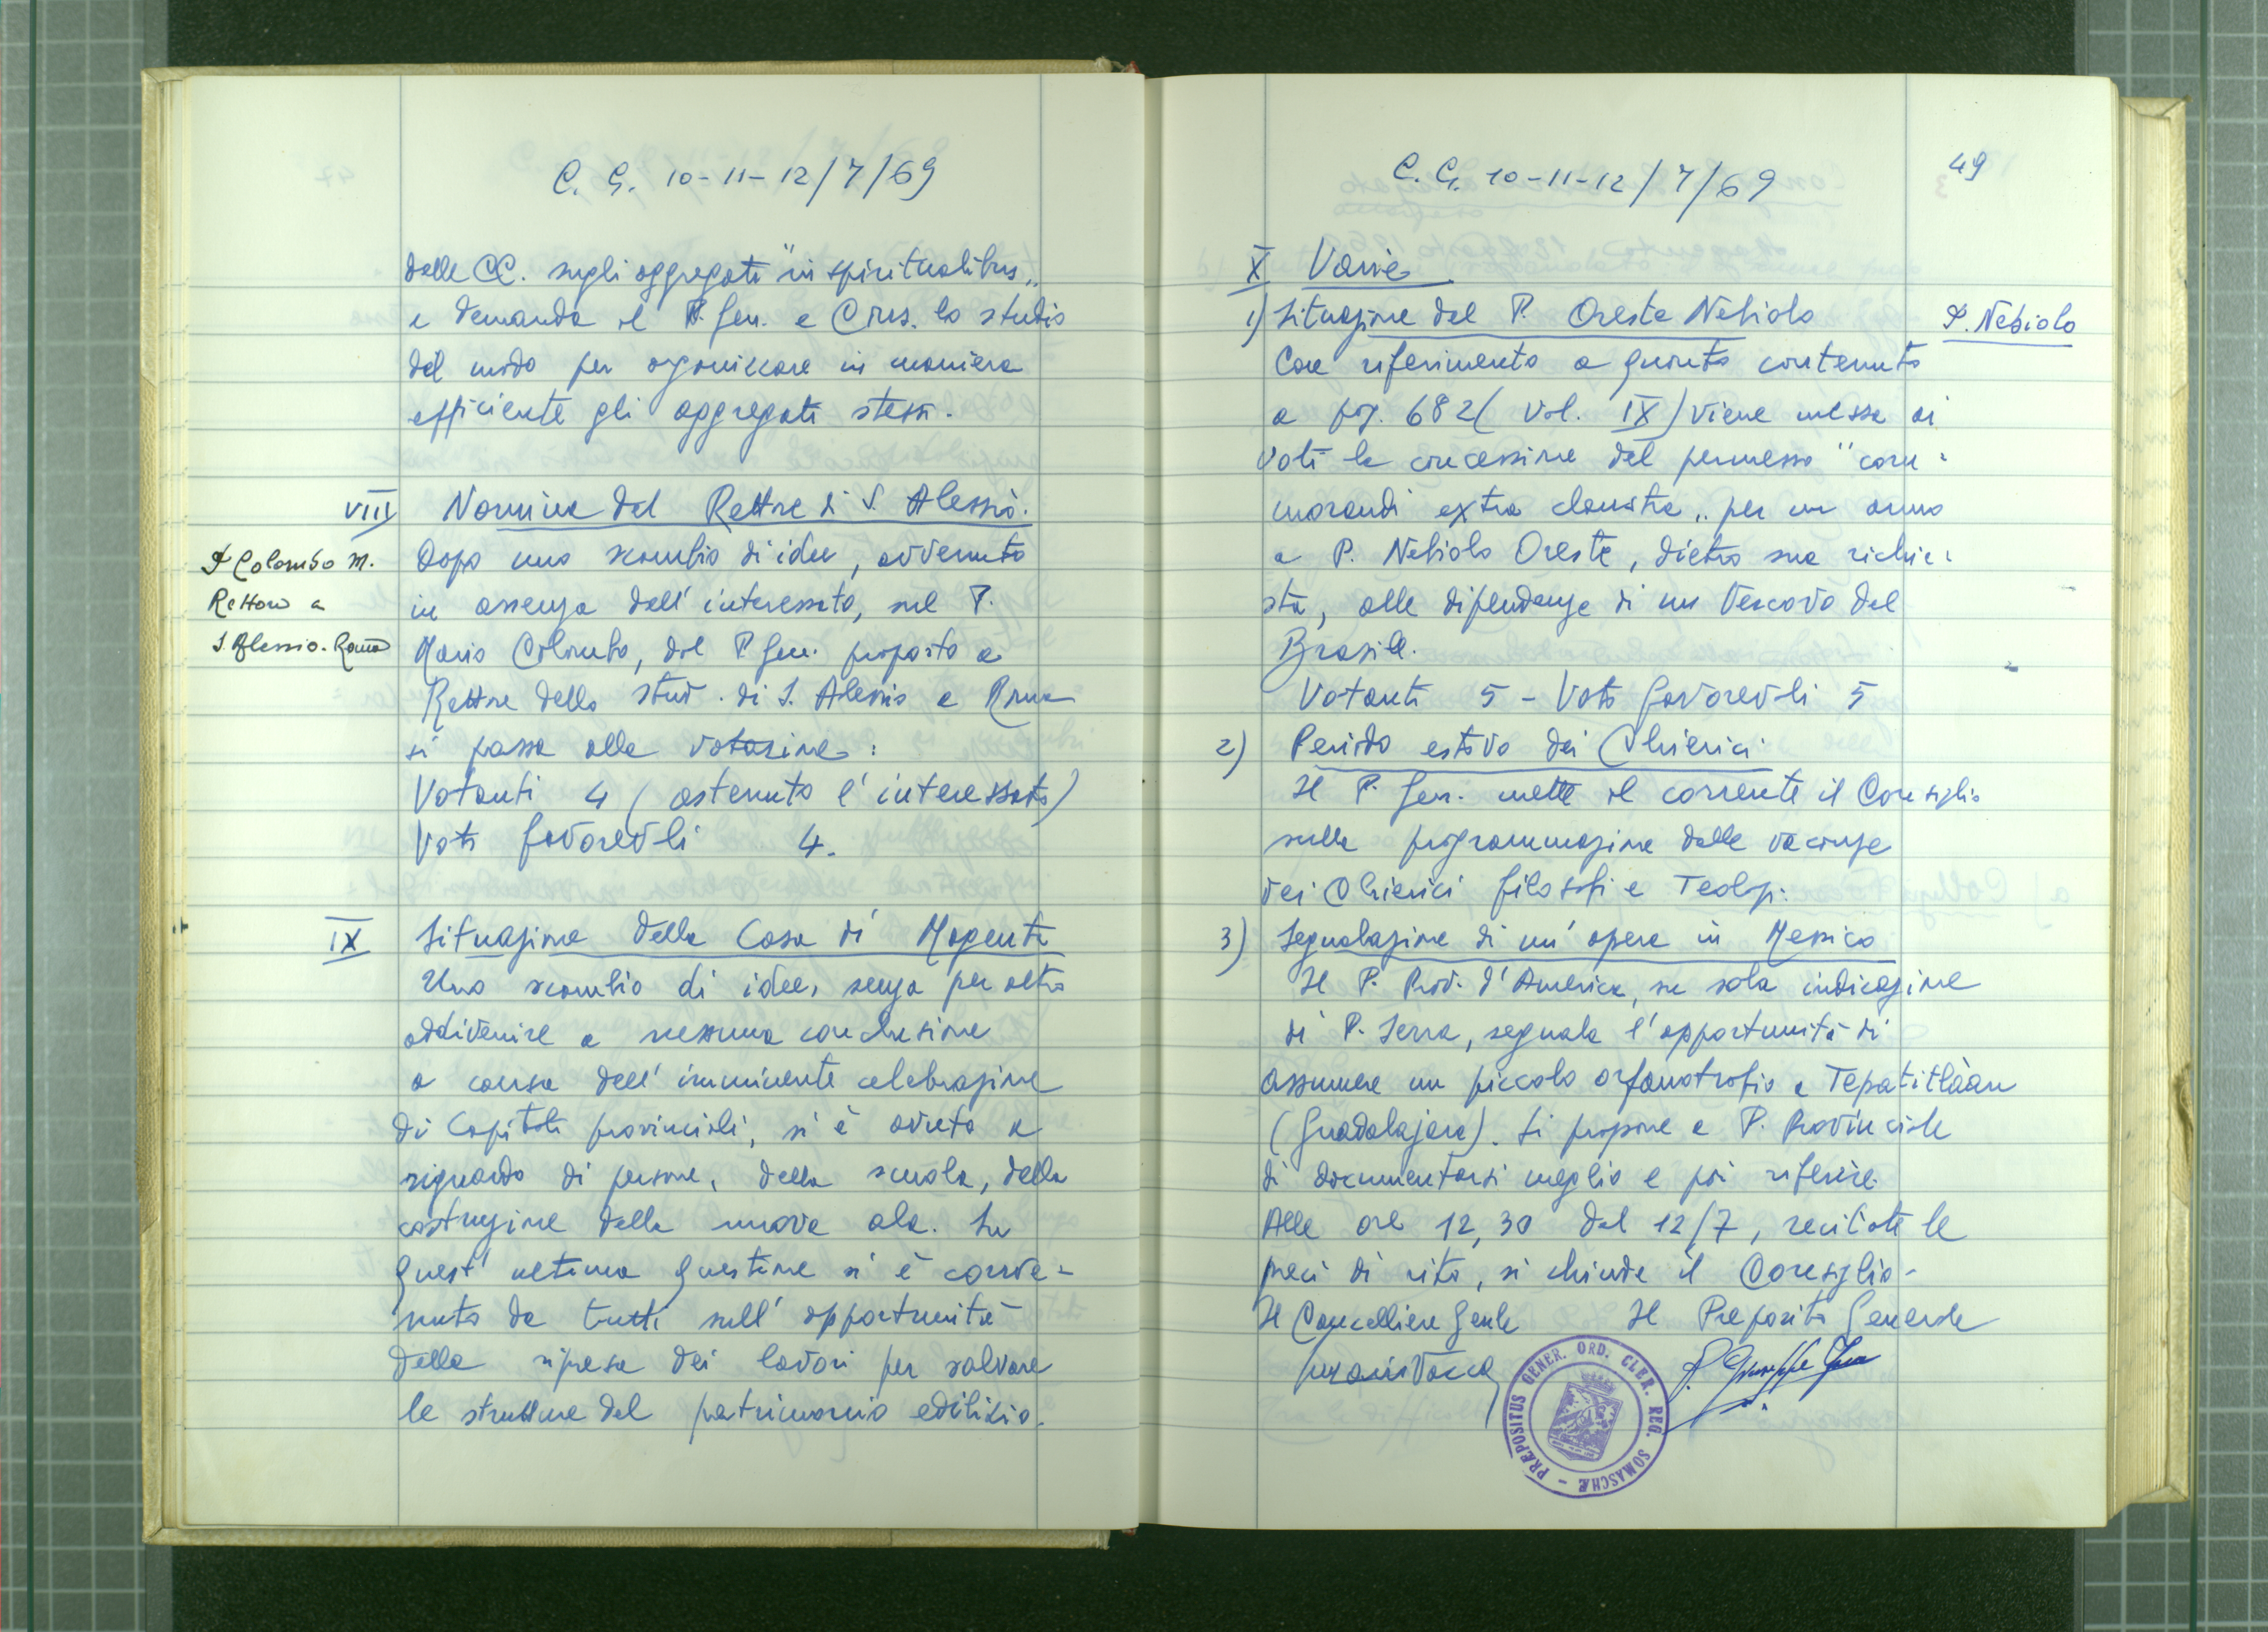 C. G. 10-11-12/7/69
delle CC. sugli aggregati "in spiritualibus„
e demanda al P. Gen. e Cons. lo studio
del modo per organizzare in maniera
efficiente gli aggregati stessi.
VIII Nomina del Rettore di S. Alessio.
P. Colombo M.
Rettore a
S. Alessio. Roma
Dopo uno scambio di idee, avvenuto
in assenza dell'interessato, sul P.
Mario Colombo, dal P. Gen. proposto a
Rettore dello stud. di S. Alessio a Roma
si passa alla votazione:
Votanti 4 (astenuto l'interessato)
Voti favorevoli 4.
IX Situazione della Casa di Magenta
Uno scambio di idee, senza per altro
addivenire a nessuna conclusione
a causa dell'imminente celebrazione
di Capitoli provinciali, si è avuto a
riguardo di persone, della scuola, della
costruzione della nuova ala. Su
quest'ultima questione si è conve-
nuto da tutti sull'opportunità
della ripresa dei lavori per salvare
le strutture del patrimonio edilizio.
C. G. 10-11-12/7/69
49
X Varie
1) Situazione del P. Oreste Nebiolo
P. Nebiolo
Con riferimento a quanto contenuto
a pag. 682 (vol. IX) viene messa ai
voti la concessione del permesso "com=
morandi extra claustra„ per un anno
a P. Nebiolo Oreste, dietro sua richie=
sta, alle dipendenze di un Vescovo del
Brasile.
Votanti 5 - Voti favorevoli 5
2) Periodo estivo dei Chierici
Il P. Gen. mette al corrente il Consiglio
sulla programmazione delle vacanze
dei Chierici filosofi e Teologi.
3) Segnalazione di un'opera in Messico
Il P. Prov. d'America, su sola indicazione
di P. Serra, segnala l'opportunità di
assumere un piccolo orfanotrofio a Tepatitlàan
(Guadalajara). Si propone a P. Provinciale
di documentarsi meglio e poi riferire.
Alle ore 12,30 del 12/7, recitate le
preci di rito, si chiude il Consiglio.
Il Cancelliere Gen.le Il Preposito Generale
P. Giuseppe
PRÆPOSITUS GENER. ORD. CLER. REG. SOMASCHÆ